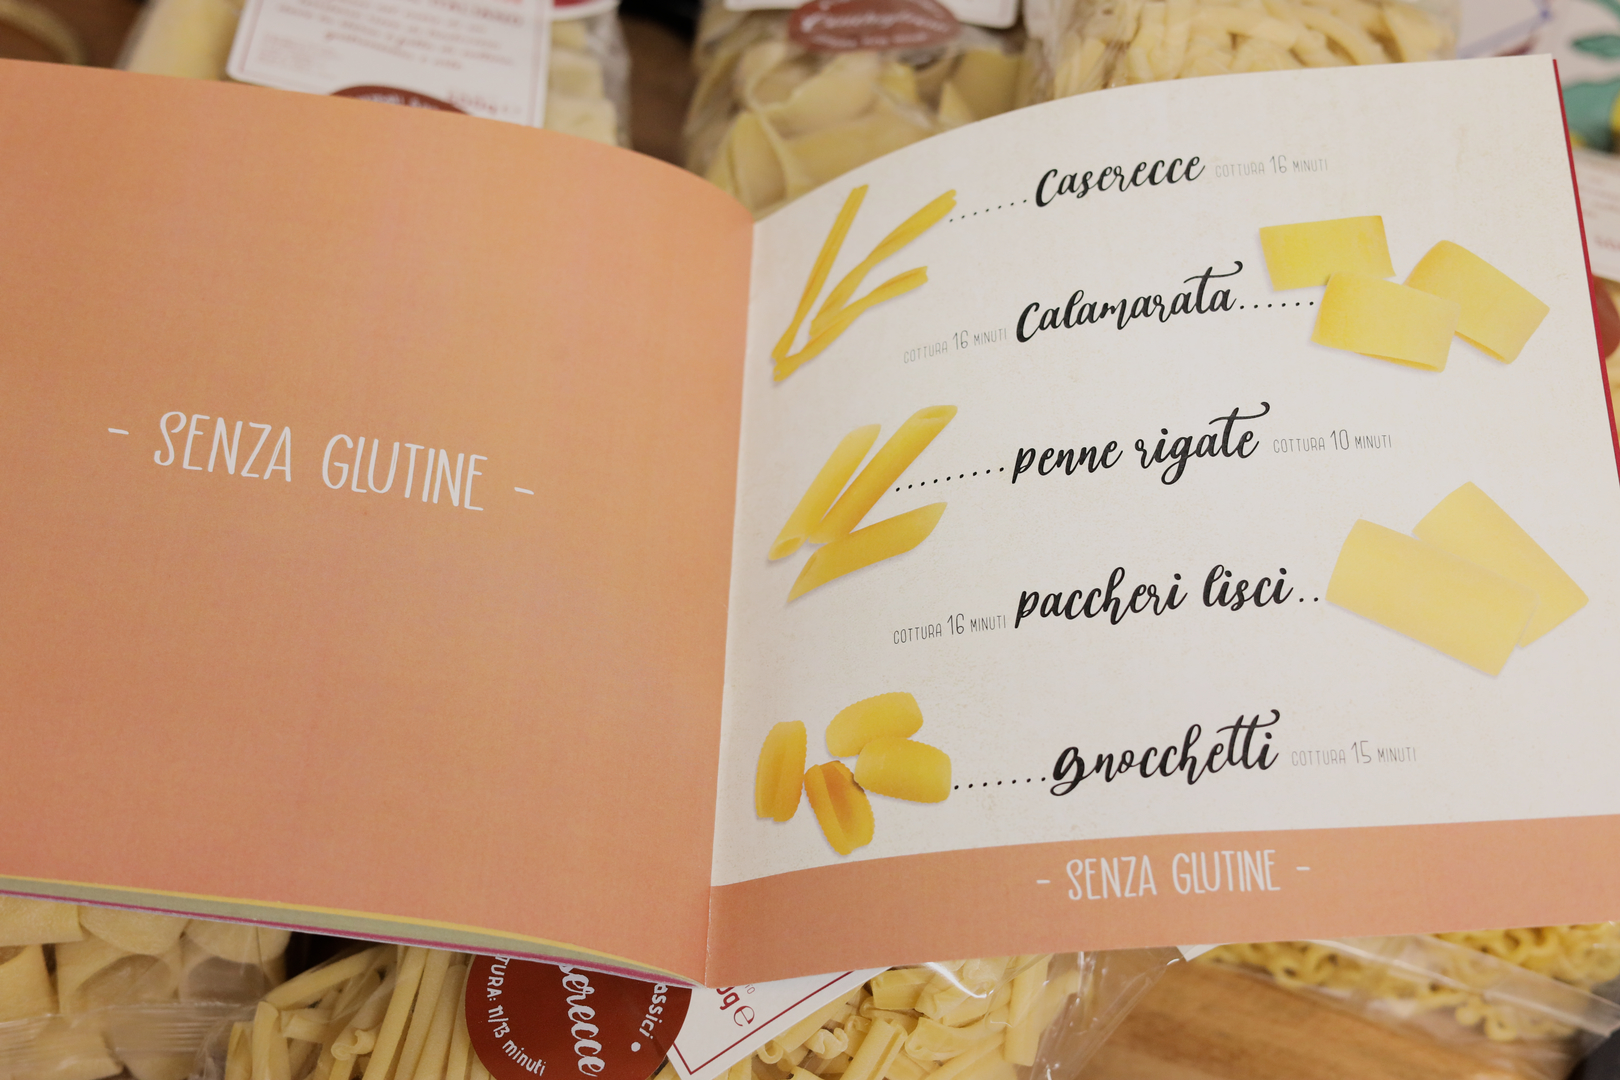 - SENZA GLUTINE -
Caserecce COTTURA 16 MINUTI
COTTURA 16 MINUTI Calamarata
penne rigate COTTURA 10 MINUTI
COTTURA 16 MINUTI paccheri lisci
gnocchetti COTTURA 15 MINUTI
- SENZA GLUTINE -
assici •
serecce
TURA: 11/13 minuti
0g e